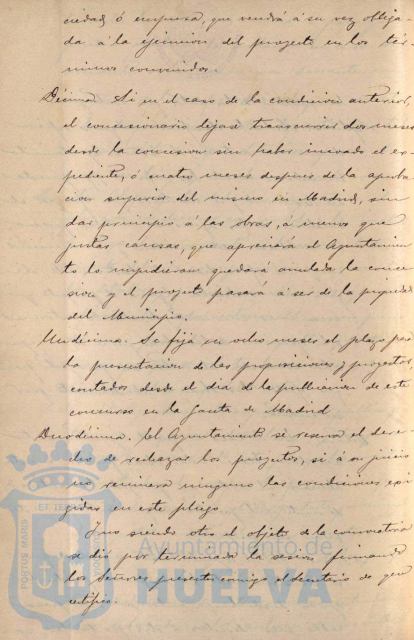 ciedad ó empresa, que vendrá á su vez obliga-
da á la ejecucion del proyecto en los tér-
minos convenidos.
Décima. Si en el caso de la condicion anterior
el concesionario dejase transcurrir dos meses
desde la concesion sin haber incoado el ex-
pediente, ó cuatro meses despues de la aproba-
cion superior del mismo en Madrid, sin
dar principio á las obras, á menos que
justas causas, que apreciará el Ayuntamien-
to lo impidieran quedará anulada la conce-
sion y el proyecto pasará á ser de la propiedad
del Municipio.
Undécima. Se fija en ocho meses el plazo para
la presentacion de las proposiciones y proyectos,
contados desde el dia de la publicacion de este
concurso en la Gaceta de Madrid
Duodécima. El Ayuntamiento se reserva el dere-
cho de rechazar los proyectos, si á su juicio
no reuniera ninguno las condiciones exi-
gidas en este pliego
Y no siendo otro el objeto de la convocatoria
se dió por terminada la sesion firmando
los Señores presentes conmigo el Secretario de que
certifico.
PORTUS MARIS
Ayuntamiento de
HUELVA